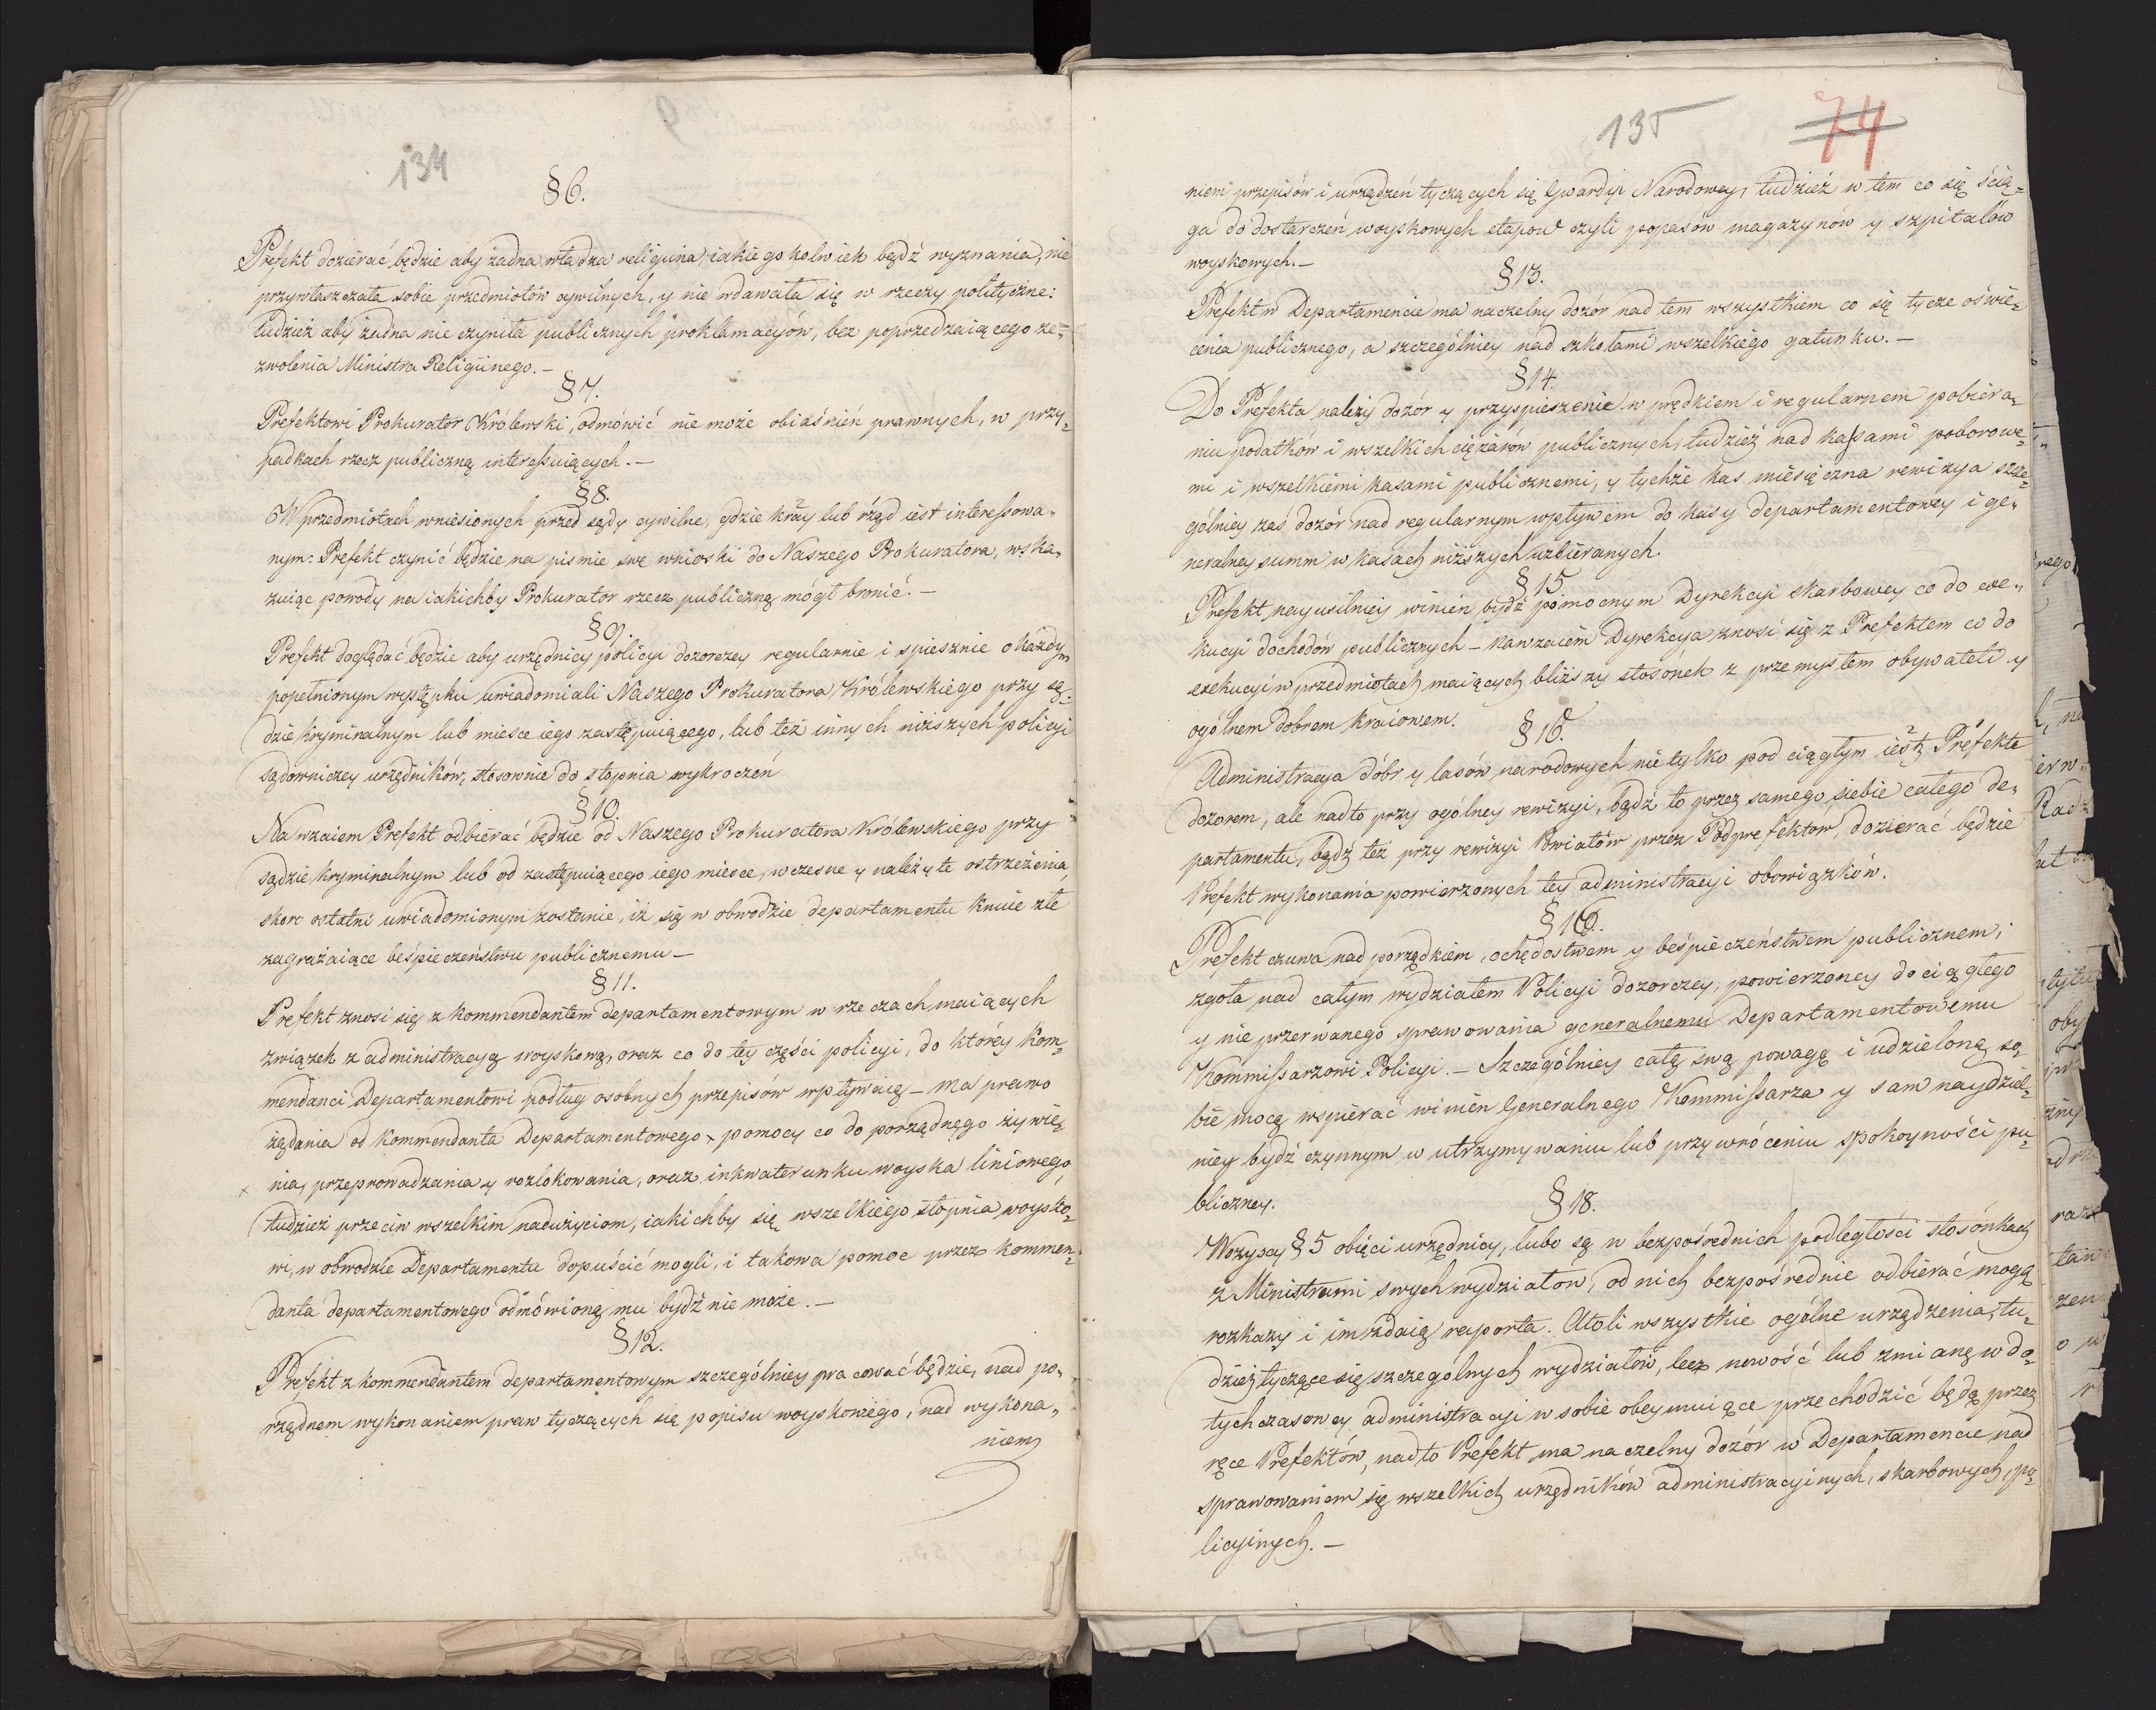 134
§ 6.
Prefekt dozierać będzie aby żadna władza religiina, iakiegokolwiek bądź wyznania, nie
przywłaszczała sobie przedmiotów cywilnych, y nie wdawała się w rzeczy polityczne:
tudzież aby żadna nie czyniła publicznych proklamacyów, bez poprzedzaiącego ze=
zwolenia Ministra Religiinego. —
§ 7.
Prefektowi Prokurator Królewski, odmówić nie może obiaśnień prawnych, w przy=
padkach rzecz publiczną interessuiących. —
§ 8.
W przedmiotach wniesionych przed sądy cywilne, gdzie kray lub rząd iest interessowa=
nym: Prefekt czynić będzie na pismie swe wnioski do Naszego Prokuratora, wska=
zuiąc powody na iakichby Prokurator rzecz publiczną mógł bronić. —
§ 9.
Prefekt doglądać będzie aby urzędnicy policyi dozorczey regularnie i spiesznie o każdym
popełnionym występku uwiadomiali Naszego Prokuratora Królewskiego przy są=
dzie kryminalnym lub miesce iego zastępuiącego, lub też innych niższych policyi
sądowniczey urzędników, stosownie do stopnia wykroczeń
§ 10.
Nawzaiem Prefekt odbierać będzie od Naszego Prokuratora Królewskiego przy
sądzie kryminalnym lub od zastępuiącego iego miesce, wczesne y należyte ostrzeżenia,
skoro ostatni uwiadomionym zostanie, iż się w obwodzie departamentu knuie złe
zagrażaiące beśpieczeństwu publicznemu —
§ 11.
Prefekt znosi się z kommendantem departamentowym w rzeczach maiących
związek z administracyą woyskową, oraz co do tey części policyi, do którey kom=
mendanci Departamentowi podług osobnych przepisów wpływaią — ma prawo
żądania od Kommendanta Departamentowego × pomocy co do porządnego żywie=
× nia, przeprowadzania y rozlokowania, oraz inkwaterunku woyska liniowego,
tudzież przeciw wszelkim nadużyciom, iakichby się wszelkiego stopnia woysko=
wi, w obwodzie Departamentu dopuścić mogli, i takowa pomoc przez kommen=
danta departamentowego odmówioną mu bydź nie może. —
§ 12.
Prefekt z kommendantem departamentowym szczególniey pracować będzie, nad po=
rządnem wykonaniem praw tyczących się popisu woyskowego, nad wykona=
niem
135
74
niem przepisów i urządzeń tyczących się Gwardyi Narodowey, tudzież w tem co się ścią=
ga do dostarczeń woyskowych etapow czyli popasów magazynów y szpitalów
woyskowych. —
§ 13.
Prefekt w Departamencie ma naczelny dozór nad tem wszystkiem co się tycze oświe=
cenia publicznego, a szczególniey nad szkołami wszelkiego gatunku. —
§ 14.
Do Prefekta należy dozór y przyspieszenie w prędkiem i regularnem pobiera=
niu podatków i wszelkich ciężarów publicznych, tudzież nad kassami poborowe=
mi i wszelkiemi kasami publicznemi, y tychże kas miesięczna rewizya szcze=
gólniey zaś dozór nad regularnym wpływem do kasy departamentowey i ge=
neralney summ w kasach niższych uzbieranych.
§ 15
Prefekt nayusilniey winien bydź pomocnym Dyrekcyi skarbowey co do exe=
kucyi dochodów publicznych — nawzaiem Dyrekcya znosi się z Prefektem co do
exekucyi w przedmiotach maiących bliższy stosónek z przemysłem obywateli y
ogólnem dobrem kraiowem.
§ 16.
Administracya dóbr y lasów narodowych nie tylko pod ciągłym iest Prefekta
dozorem, ale nadto przy ogólney rewizyi, bądź to przez samego siebie całego de=
partamentu, bądź też przy rewizyi Powiatów przez Podprefektow, dozierać będzie
Prefekt wykonania powierzonych tey administracyi obowiązków.
§ 16.
Prefekt czuwa nad porządkiem, ochędostwem y beśpieczeństwem publicznem;
zgoła nad całym wydziałem Policyi dozorczey, powierzoney do ciągłego
y nie przerwanego sprawowania generalnemu Departamentowemu
Kommissarzowi Policyi. — Szczególniey całą swą powagą i udzieloną so=
bie mocą wspierać winien Generalnego Kommissarza y sam naydziel=
niey bydź czynnym w utrzymywaniu lub przywróceniu spokoyności pu=
bliczney.
§ 18.
Wszyscy § 5 obięci urzędnicy, lubo są w bezpośrednich podległości stosónkach
z Ministrami swych wydziałow, od nich bezpośrednie odbierać mogą
rozkazy i im zdaią raporta. Atoli wszystkie ogólne urządzenia, tu=
dzież tyczące się szczególnych wydziałów, lecz nowość lub zmianę w do=
tychczasowey administracyi w sobie obeymuiące przechodzić będą przez
ręce Prefektów, nadto Prefekt ma naczelny dozór w Departamencie nad
sprawowaniem się wszelkich urzędników administracyinych, skarbowych, po=
licyinych. —